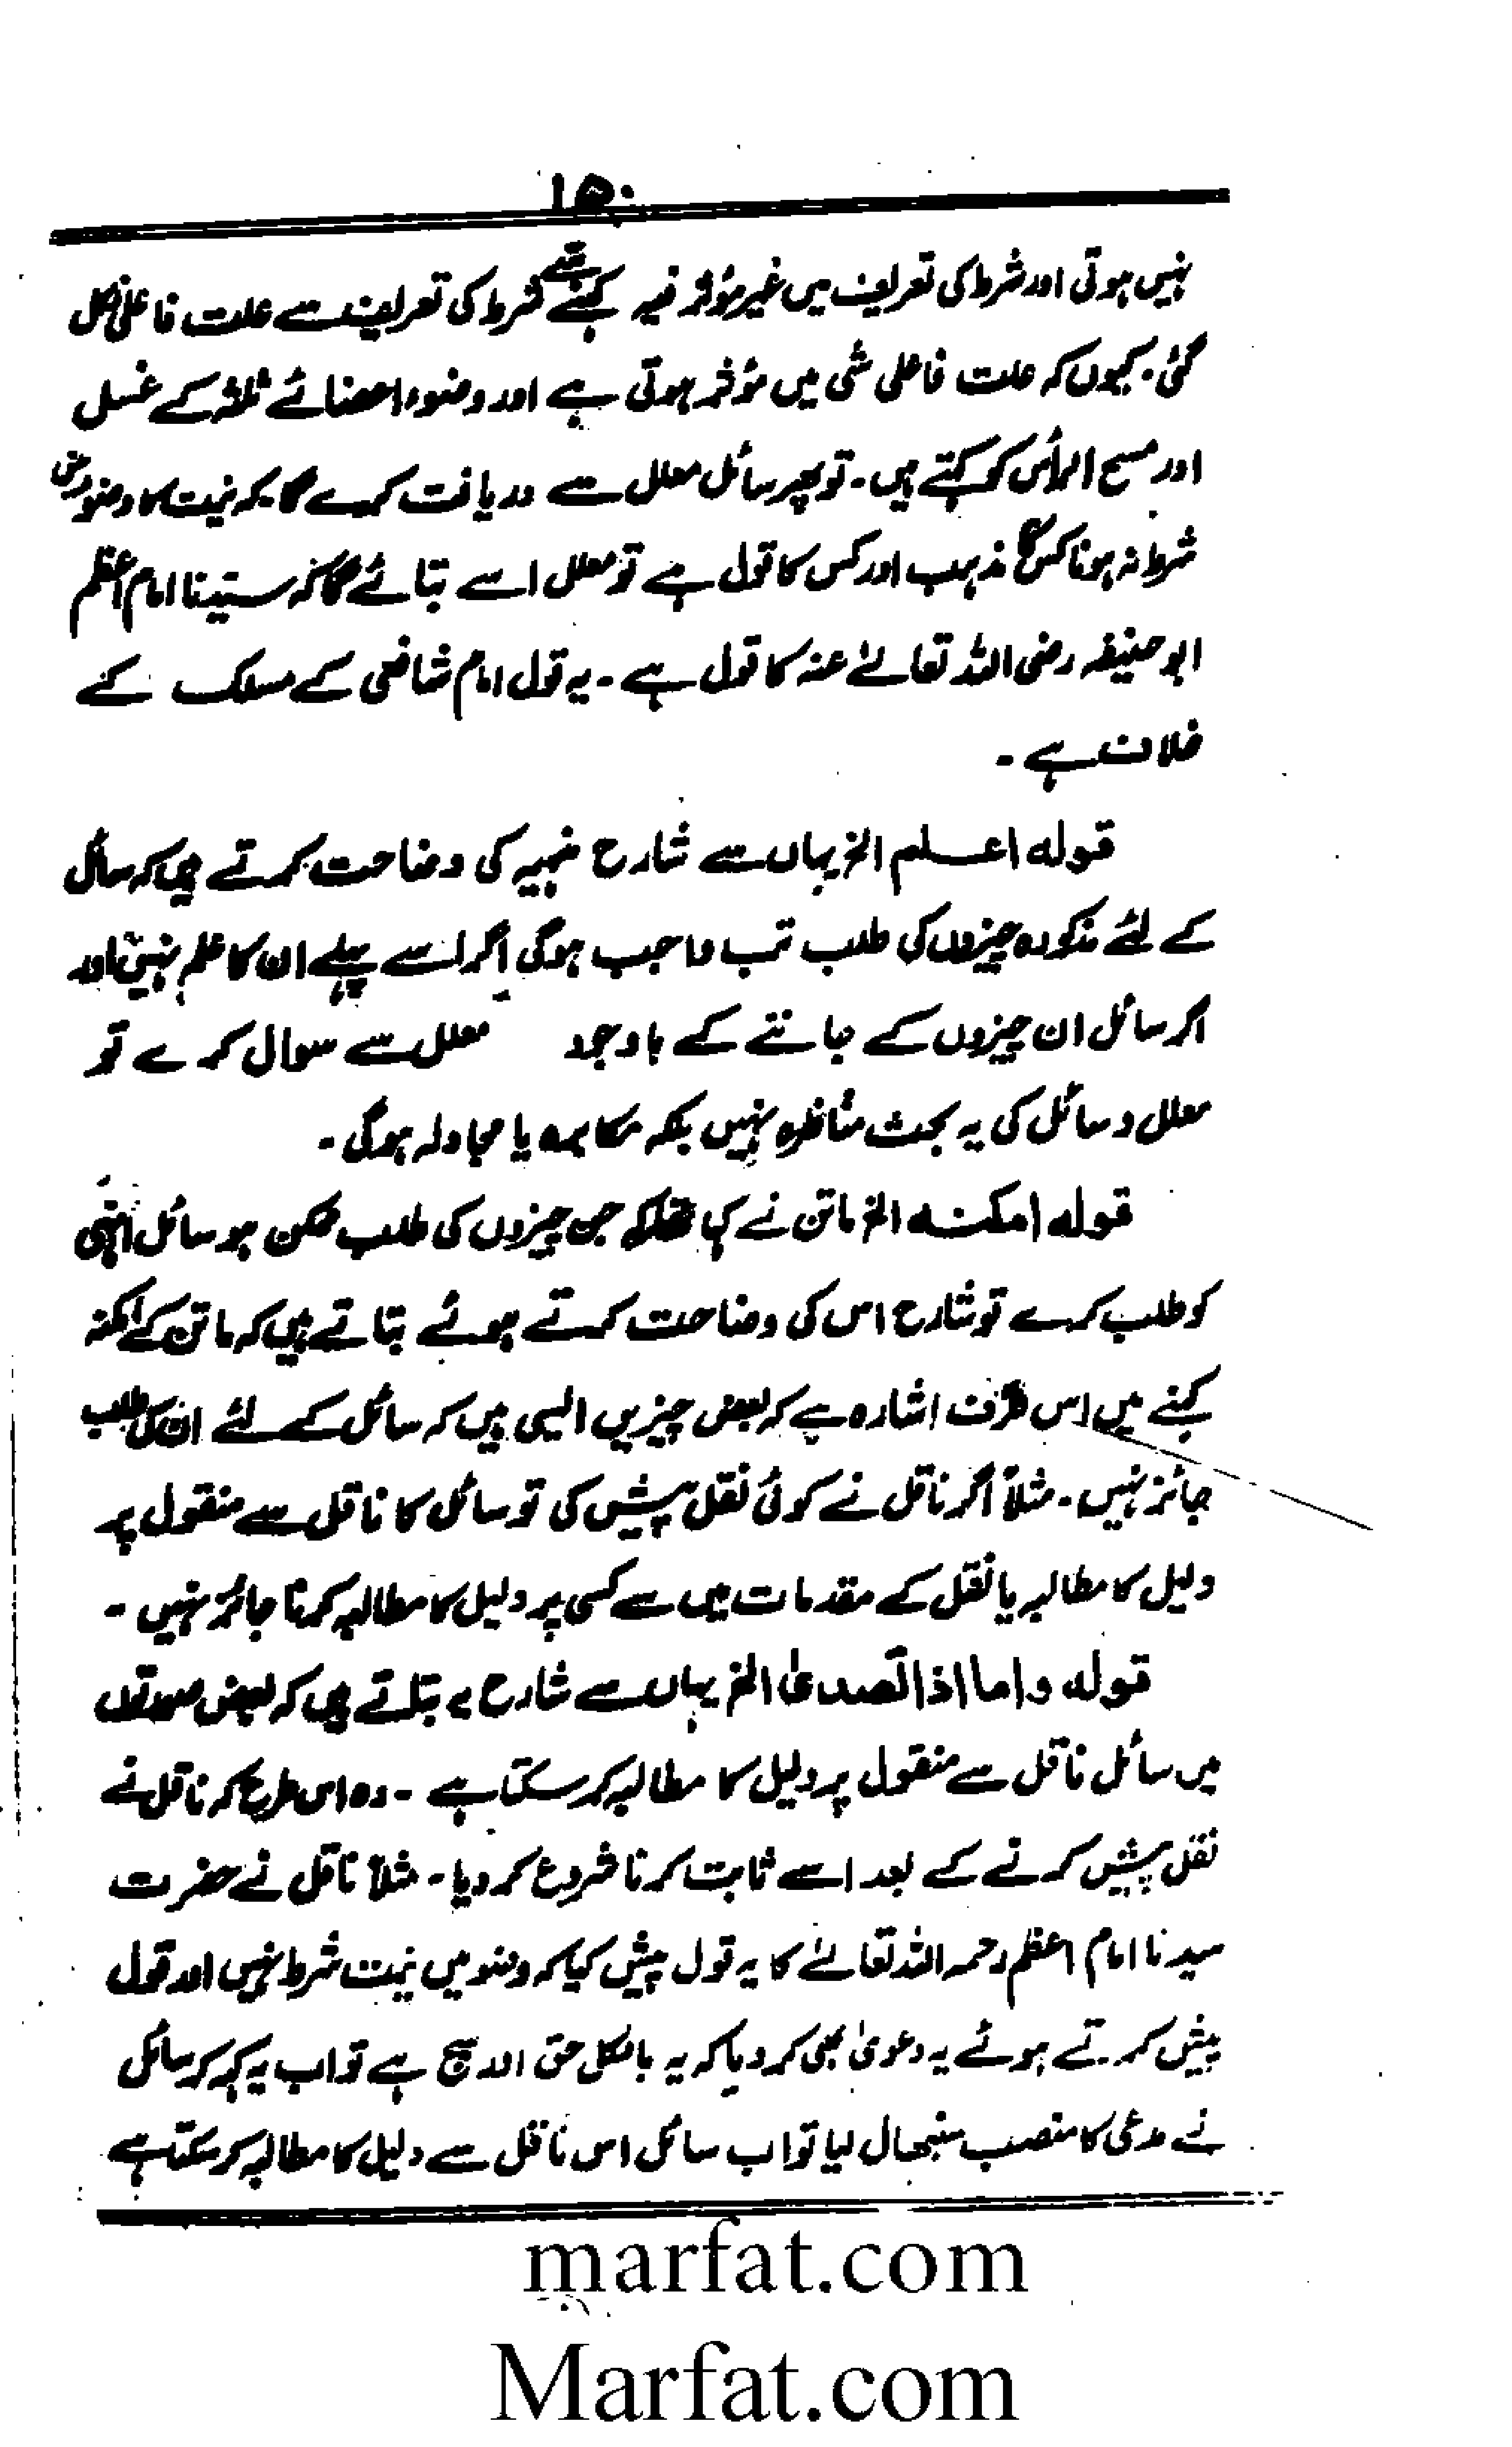 ۱۵۰
نہیں ہوتی اور شرط کی تعریف میں غیر مؤثر فیہ کہنے سے شرط کی تعریف سے علت فاعلی نکل
گئی۔ کیوں کہ علت فاعلی شئی میں مؤثر ہوتی ہے اور وضوء اعضائے ثلثہ کے غسل
اور مسح الرأس کو کہتے ہیں۔ تو پھر سائل معلل سے دریافت کرے گا۔ کہ نیت کا وضو میں
شرط نہ ہونا کس کا مذہب اور کس کا قول ہے تو معلل اسے بتائے گا کہ سیّدنا امام اعظم
ابو حنیفہ رضی اللہ تعالےٰ عنہ کا قول ہے۔ یہ قول امام شافعی کے مسلک کے
خلاف ہے۔
قولہ اعلم الخ یہاں سے شارح منہیہ کی وضاحت کرتے ہیں کہ سائل
کے لئے مذکورہ چیزوں کی طلب تب واجب ہوگی اگر اسے پہلے ان کا علم نہیں اور
اگر سائل ان چیزوں کے جاننے کے باوجود معلل سے سوال کرے تو
معلل و سائل کی یہ بحث مناظرہ نہیں بلکہ مکابرہ یا مجادلہ ہوگی۔
قولہ امکنہ الخ ماتن نے کہا تھا کہ جن چیزوں کی طلب ممکن ہو سائل انہی
کو طلب کرے تو شارح اس کی وضاحت کرتے ہوئے بتاتے ہیں کہ ماتن کے امکنہ
کہنے میں اس طرف اشارہ ہے کہ بعض چیزیں ایسی ہیں کہ سائل کے لئے ان کی طلب
جائز نہیں۔ مثلاً اگر ناقل نے کوئی نقل پیش کی تو سائل کا ناقل سے منقول پر
دلیل کا مطالبہ یا نقل کے مقدمات میں سے کسی پر دلیل کا مطالبہ کرنا جائز نہیں۔
قولہ واما اذا تصدی الخ یہاں سے شارح یہ بتلاتے ہیں کہ بعض صورتوں
میں سائل ناقل سے منقول پر دلیل کا مطالبہ کر سکتا ہے۔ وہ اس طرح کہ ناقل نے
نقل پیش کرنے کے بعد اسے ثابت کرنا شروع کر دیا۔ مثلاً ناقل نے حضرت
سیدنا امام اعظم رحمہ اللہ تعالےٰ کا یہ قول پیش کیا کہ وضو میں نیت شرط نہیں اور قول
پیش کرتے ہوئے یہ دعویٰ بھی کر دیا کہ یہ بالکل حق اور سچ ہے تو اب یہ کہہ کر سائل
نے مدعی کا منصب سنبھال لیا تو اب سائل اس ناقل سے دلیل کا مطالبہ کر سکتا ہے
marfat.com
Marfat.com